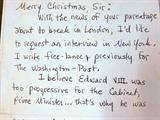 Merry Christmas, Sir:
With the news of your parentage
about to break in London, I'd like
to request an interview in New York.
I write free-lance, previously for
The Washington-Post.
I believe Edward VIII. was
too progressive for the Cabinet,
Prime Minister... that's why he was